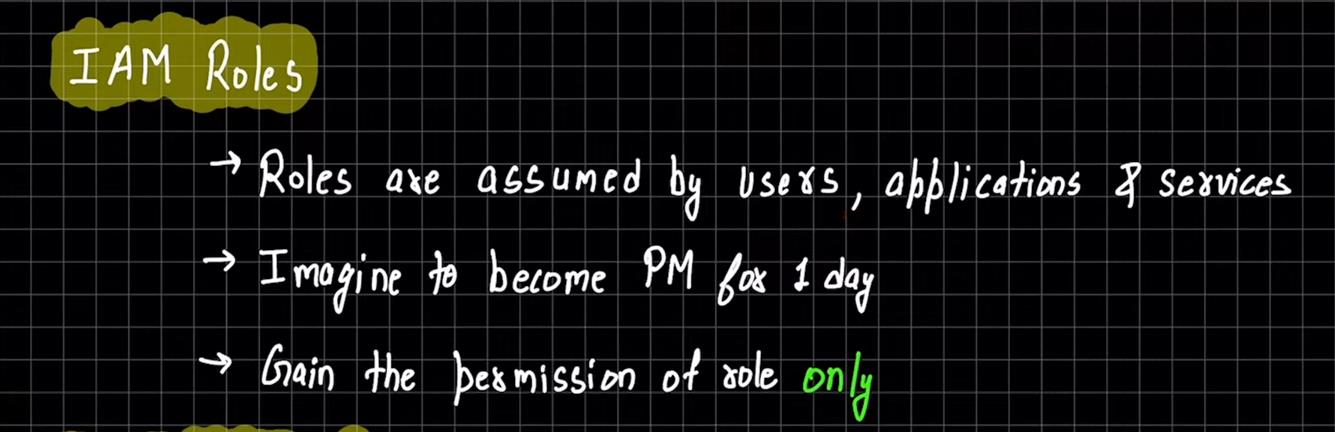 IAM Roles
→ Roles are assumed by users, applications & services
→ Imagine to become PM for 1 day
→ Gain the permission of role only